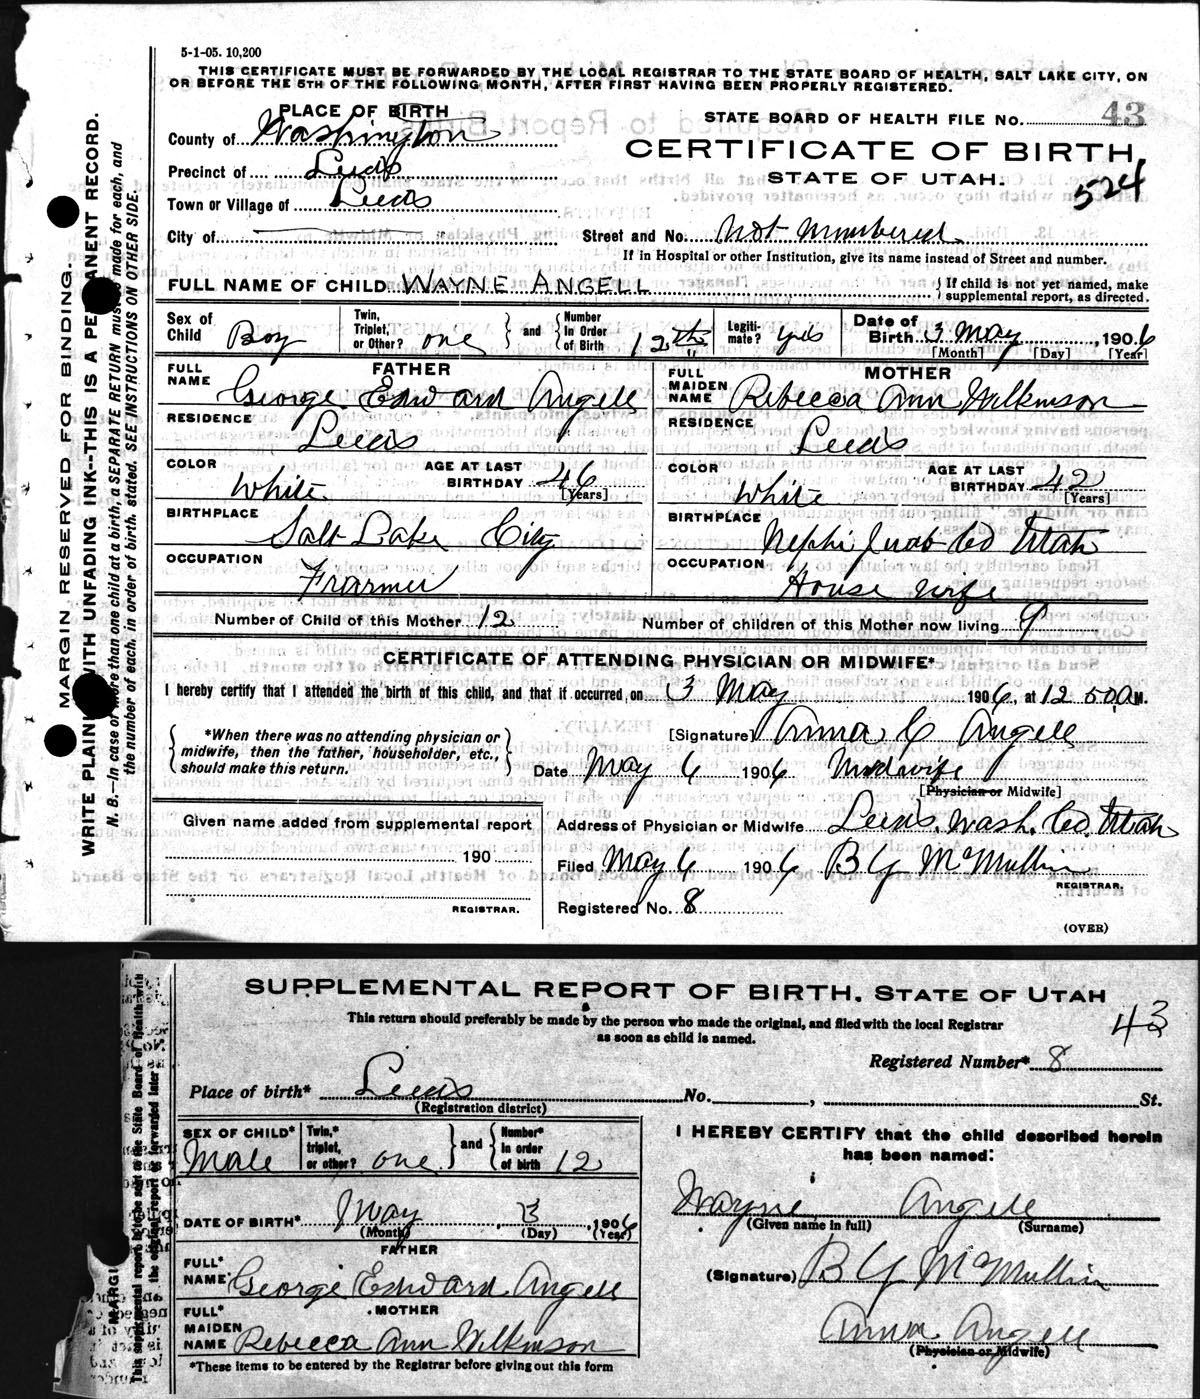 5-1-05. 10,200
THIS CERTIFICATE MUST BE FORWARDED BY THE LOCAL REGISTRAR TO THE STATE BOARD OF HEALTH, SALT LAKE CITY, ON
OR BEFORE THE 5TH OF THE FOLLOWING MONTH, AFTER FIRST HAVING BEEN PROPERLY REGISTERED.
PLACE OF BIRTH
STATE BOARD OF HEALTH FILE No. 43
County of Washington
CERTIFICATE OF BIRTH
Precinct of Leeds
STATE OF UTAH.
524
Town or Village of Leeds
City of
Street and No. Not Numbered
If in Hospital or other Institution, give its name instead of Street and number.
FULL NAME OF CHILD WAYNE ANGELL } If child is not yet named, make supplemental report, as directed.
Sex of Child Boy Twin, Triplet, or Other? one } and { Number in Order of Birth 12th Legitimate? yes Date of Birth 3 May 1906
[Month] [Day] [Year]
FATHER MOTHER
FULL NAME George Edward Angell FULL MAIDEN NAME Rebecca Ann Wilkinson
RESIDENCE Leeds RESIDENCE Leeds
COLOR White AGE AT LAST BIRTHDAY 46 [Years] COLOR White AGE AT LAST BIRTHDAY 42 [Years]
BIRTHPLACE Salt Lake City BIRTHPLACE Nephi Juab Co Utah
OCCUPATION Frarmer OCCUPATION House wife
Number of Child of this Mother 12 Number of children of this Mother now living 9
CERTIFICATE OF ATTENDING PHYSICIAN OR MIDWIFE*
I hereby certify that I attended the birth of this child, and that it occurred on 3 May 1906, at 12 50 A M.
{ *When there was no attending physician or midwife, then the father, householder, etc., should make this return. }
[Signature] Anna C Angell
Date May 6 1906 Midwife
[Physician or Midwife]
Given name added from supplemental report
190
REGISTRAR.
Address of Physician or Midwife Leeds, Wash. Co. Utah
Filed May 6 1906 B Y McMullin
REGISTRAR.
Registered No. 8
(OVER)
MARGIN RESERVED FOR BINDING.
WRITE PLAINLY WITH UNFADING INK--THIS IS A PERMANENT RECORD.
N. B.--In case of more than one child at a birth, a SEPARATE RETURN must be made for each, and
the number of each, in order of birth, stated. SEE INSTRUCTIONS ON OTHER SIDE.
SUPPLEMENTAL REPORT OF BIRTH. STATE OF UTAH
This return should preferably be made by the person who made the original, and filed with the local Registrar
as soon as child is named.
43
Registered Number* 8
Place of birth* Leeds No. , St.
(Registration district)
SEX OF CHILD* Male Twin,* triplet, or other? one } and { Number* in order of birth 12
DATE OF BIRTH* May 3, 1906
(Month) (Day) (Year)
FATHER
FULL* NAME George Edward Angell
MOTHER
FULL* MAIDEN NAME Rebecca Ann Wilkinson
*These items to be entered by the Registrar before giving out this form
I HEREBY CERTIFY that the child described herein
has been named:
Wayne Angell
(Given name in full) (Surname)
(Signature) B Y McMullin
Anna Angell
(Physician or Midwife)